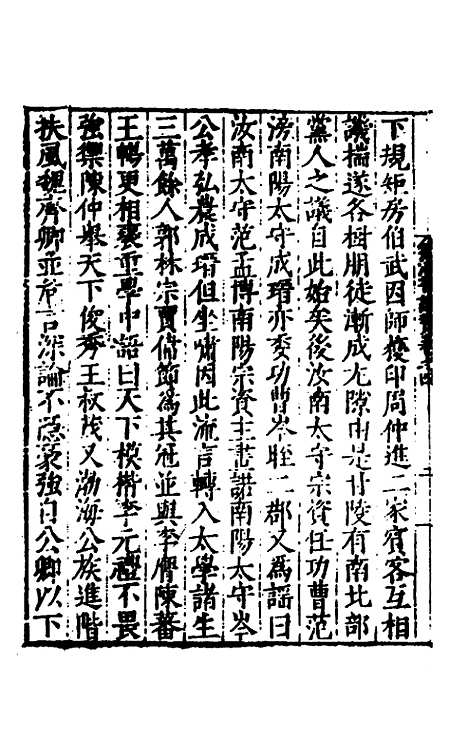 下規矩房伯武因師獲印周仲進二家賓客互相
譏揣遂各樹朋徒漸成尤隙由是甘陵有南北部
黨人之議自此始矣後汝南太守宗資任功曹范
滂南陽太守成瑨亦委功曹岑晊二郡又為謡曰
汝南太守范孟博南陽宗資主畫諾南陽太守岑
公孝弘農成瑨但坐嘯因此流言轉入太學諸生
三萬餘人郭林宗賈偉節為其冠並與李膺陳蕃
王暢更相褒重學中語曰天下模楷李元禮不畏
強禦陳仲舉天下俊秀王叔茂又渤海公族進階
扶風魏齊卿並危言深論不隱豪強自公卿以下